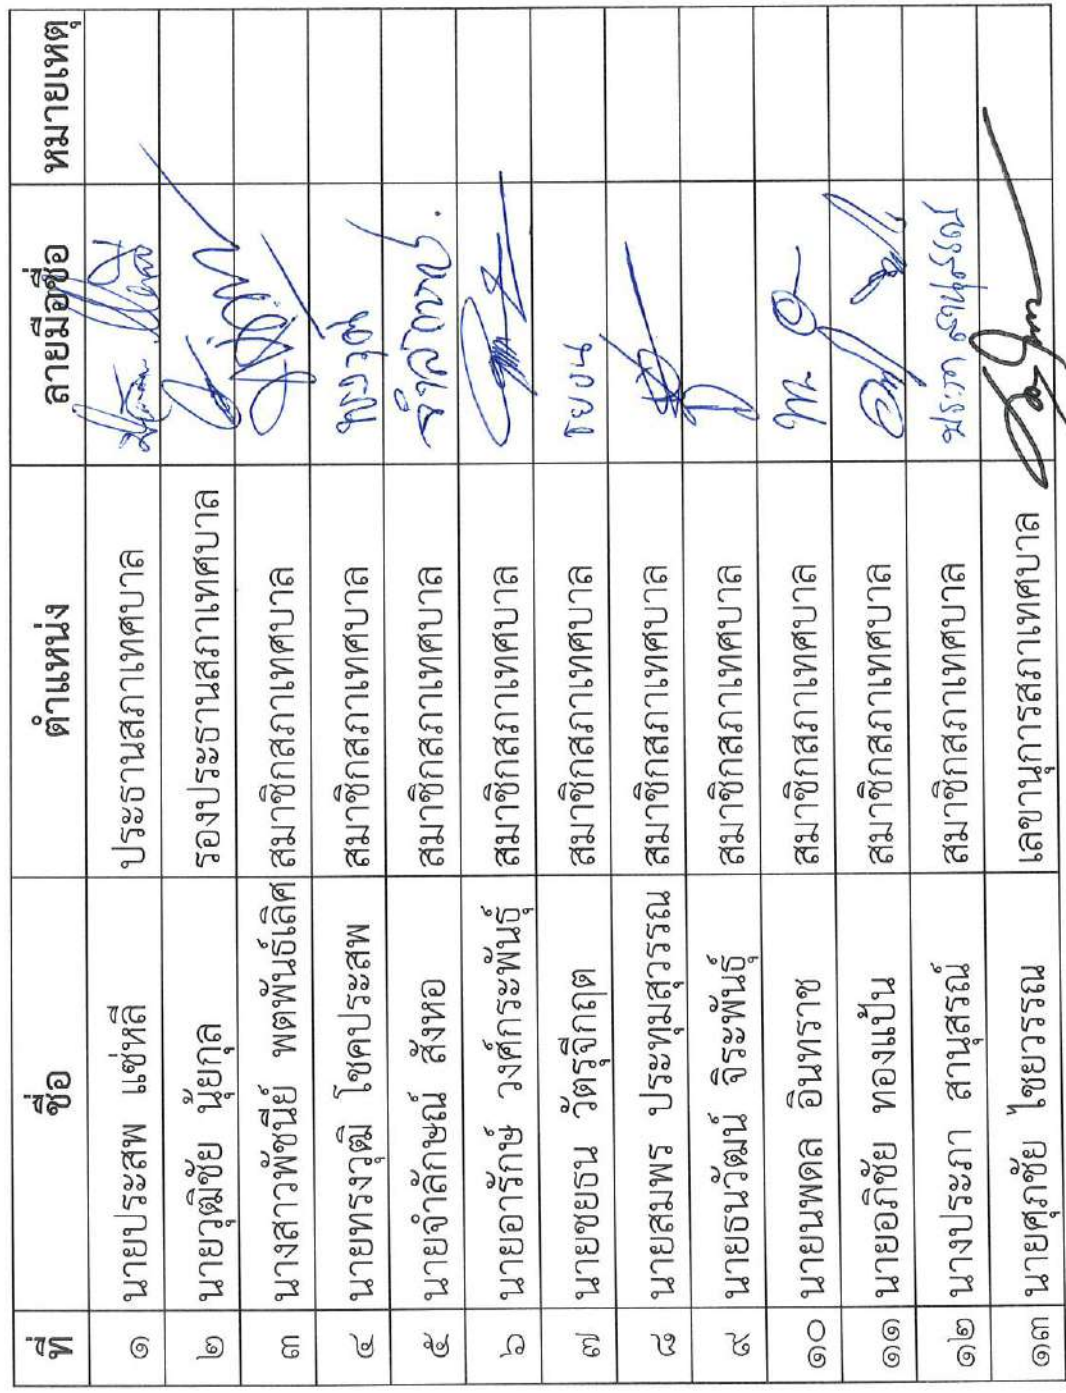 ที่ ชื่อ ตำแหน่ง ลายมือชื่อ หมายเหตุ
๑ นายประสพ แซ่หลี ประธานสภาเทศบาล
๒ นายวุฒิชัย นุ้ยกุล รองประธานสภาเทศบาล
๓ นางสาวพัชนีย์ พตพันธ์เลิศ สมาชิกสภาเทศบาล
๔ นายทรงวุฒิ โชคประสพ สมาชิกสภาเทศบาล ทรงวุฒิ
๕ นายจำลักษณ์ สังหอ สมาชิกสภาเทศบาล
๖ นายอารักษ์ วงศ์กระพันธุ์ สมาชิกสภาเทศบาล
๗ นายชยธน วัตรุจีกฤต สมาชิกสภาเทศบาล ชยธน
๘ นายสมพร ประทุมสุวรรณ สมาชิกสภาเทศบาล
๙ นายธนวัฒน์ จิระพันธุ์ สมาชิกสภาเทศบาล
๑๐ นายนพดล อินทราช สมาชิกสภาเทศบาล
๑๑ นายอภิชัย ทองแป้น สมาชิกสภาเทศบาล
๑๒ นางประภา สานุสรณ์ สมาชิกสภาเทศบาล
๑๓ นายศุภชัย ไชยวรรณ เลขานุการสภาเทศบาล